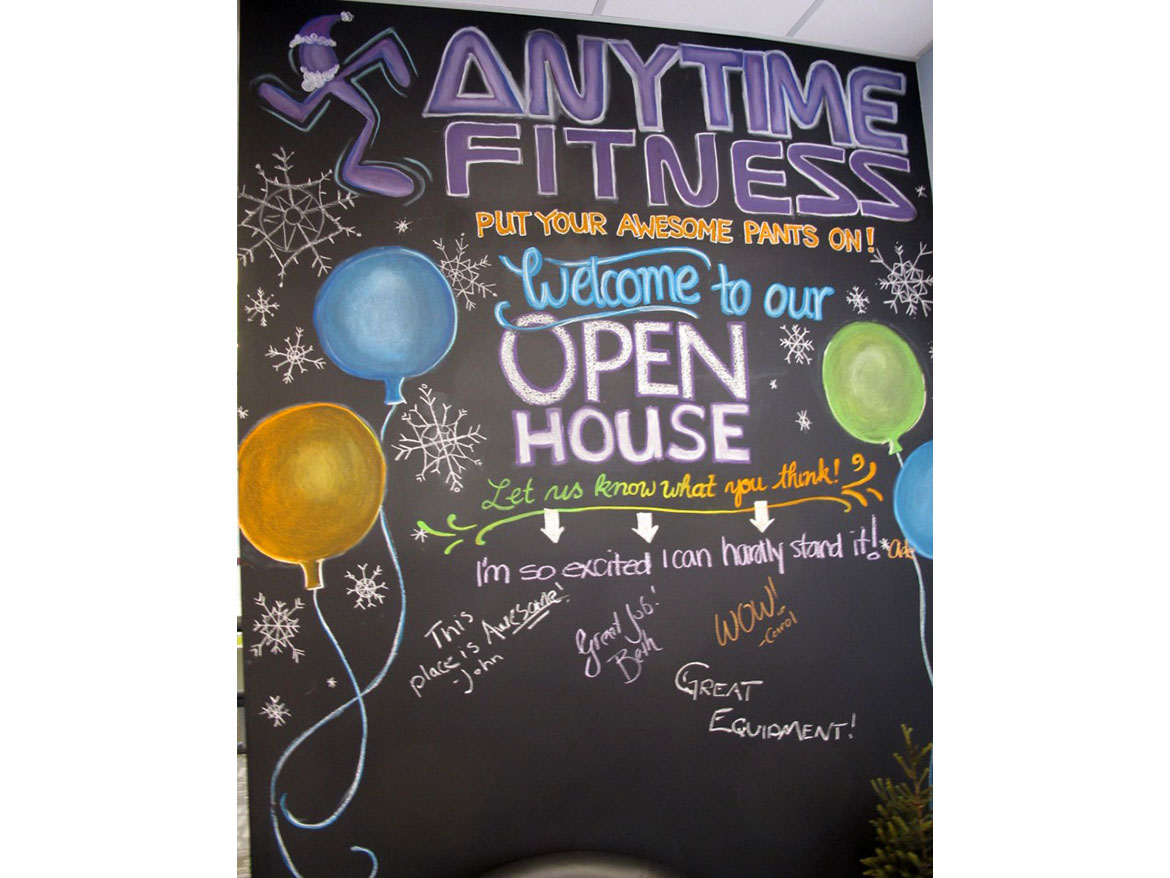 ANYTIME
FITNESS
PUT YOUR AWESOME PANTS ON!
Welcome to our
OPEN
HOUSE
Let us know what you think!
I'm so excited I can hardly stand it!
This
place is Awesome!
-John
Great Job!
Beth
WOW!
-Carol
GREAT
EQUIPMENT!